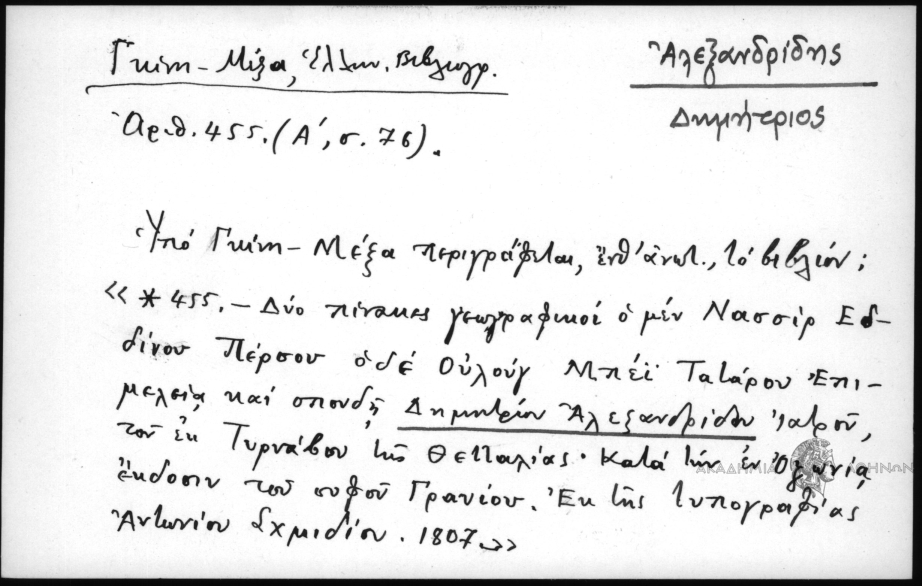 Γκίνη – Μέξα, Ἑλλην. Βιβλιογρ.
Ἀλεξανδρίδης
Δημήτριος
Ἀριθ. 455. (Α΄, σ. 76).
Ὑπό Γκίνη – Μέξα περιγράφεται, ἔνθ' ἀνωτ., τό βιβλίον:
«*455. – Δύο πίνακες γεωγραφικοί ὁ μέν Νασσίρ Εδ-
δίνου Πέρσου ὁ δέ Οὐλούγ Μπέϊ Τατάρου Ἐπι-
μελείᾳ καί σπουδῇ Δημητρίου Ἀλεξανδρίδου Ἰατροῦ,
τοῦ ἐκ Τυρνάβου τῆς Θετταλίας. Κατά τήν ἐν Ὀξωνίᾳ
ἔκδοσιν τοῦ σοφοῦ Γραυίου. Ἐκ τῆς τυπογραφίας
Ἀντωνίου Σχμιδίου. 1807.»
ΑΚΑΔΗΜΙΑ ΑΘΗΝΩΝ